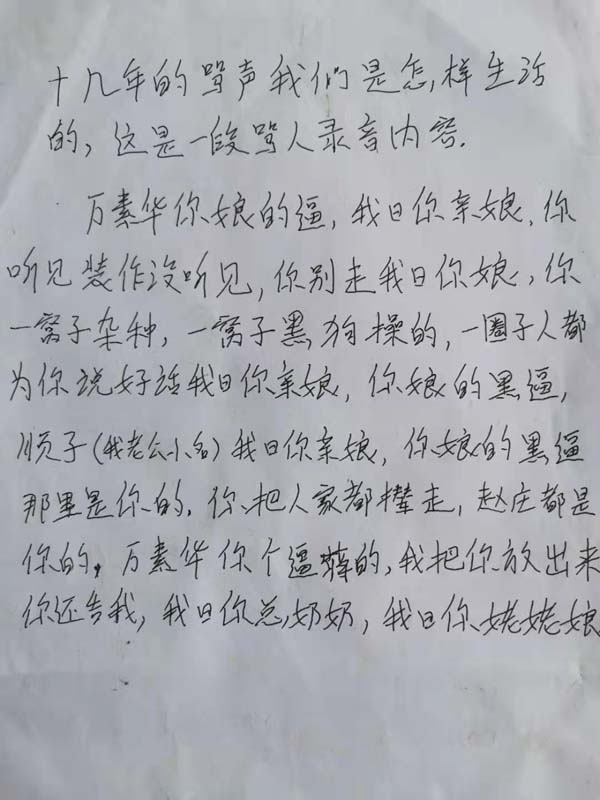 十九年的骂声我们是怎样生活
的，这是一段骂人录音内容.
万素华你娘的逼，我日你亲娘，你
听见装作没听见，你别走我日你娘，你
一窝子杂种，一窝子黑狗操的，一圈子人都
为你说好话我日你亲娘，你娘的黑逼，
顺子(我老公小名)我日你亲娘，你娘的黑逼
那里是你的，你把人家都撵走，赵庄都是
你的，万素华你个逼养的，我把你放出来
你还告我，我日你总奶奶，我日你姥姥娘